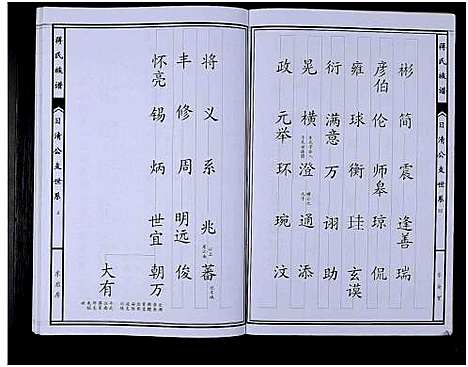 蒋氏族谱
日清公支世卷
彬 简 震 逢善 瑞
彦伯 伦 师皋 琼 侃
雍 球 衡 珪 玄谟
衍 满意 万 诩 助
晃 横 澄 通 添
政 元举 环 琬 汶
蒋氏族谱
日清公支世卷
将 义 系 兆 蕃
丰 修 周 明远 俊
怀亮 锡 炳 世宜 朝万
大有